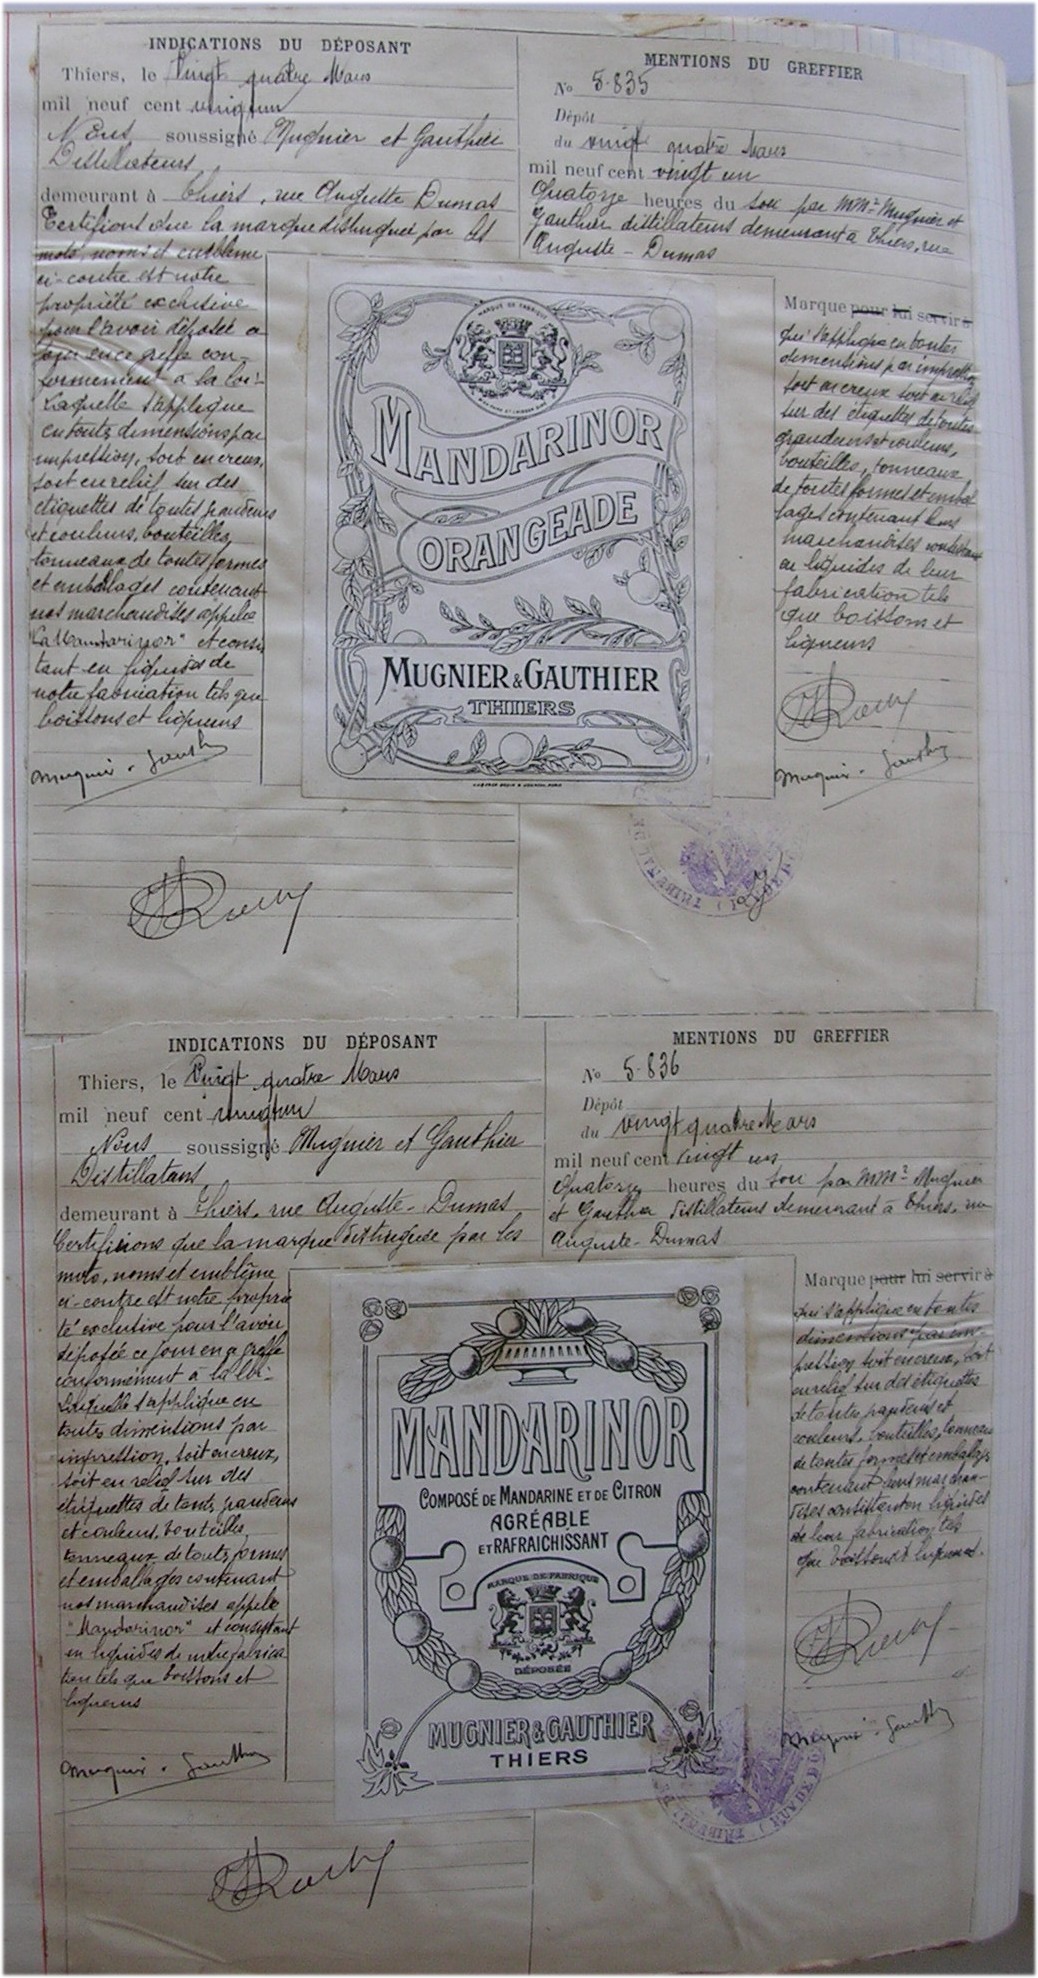 INDICATIONS DU DÉPOSANT
Thiers, le Vingt quatre Mars
mil neuf cent vingtun
Nous soussigné Mugnier et Gauthier
Distillateurs
demeurant à Thiers, rue Auguste Dumas
Certifions que la marque distinguée par les
mots, noms et emblème
ci-contre est notre
propriété exclusive
pour l'avoir déposée ce
jour en ce greffe con-
formément à la loi-
Laquelle s'applique
en toutes dimensions par
impression, soit en creux,
soit en relief sur des
étiquettes de toutes grandeurs
et couleurs, bouteilles,
tonneaux de toutes formes
et emballages contenant
nos marchandises appelé
"La Mandarinor" et consis
tant en liquides de
notre fabrication tels que
boissons et liqueurs
Mugnier & Gauthier
MENTIONS DU GREFFIER
No 5.835
Dépôt
du vingt quatre Mars
mil neuf cent vingt un
Quatorze heures du soir par MMrs Mugnier et
Gauthier distillateurs demeurant à Thiers, rue
Auguste-Dumas
Marque pour lui servir à
qui s'applique en toutes
dimensions par impression
soit en creux soit en relief
sur des étiquettes de toutes
grandeurs et couleurs,
bouteilles, tonneaux
de toutes formes et embal
lages contenant leurs
marchandises consistant
en liquides de leur
fabrication tels
que boissons et
liqueurs
Mugnier & Gauthier
MARQUE DE FABRIQUE
MANDARINOR
ORANGEADE
MUGNIER & GAUTHIER
THIERS
INDICATIONS DU DÉPOSANT
Thiers, le Vingt quatre Mars
mil neuf cent vingtun
Nous soussigné Mugnier et Gauthier
Distillateurs
demeurant à Thiers, rue Auguste-Dumas
Certifions que la marque distinguée par les
mots, noms et emblême
ci-contre est notre proprié
té exclusive pour l'avoir
déposée ce jour en ce greffe
conformément à la loi-
Laquelle s'applique en
toutes dimensions par
impression, soit en creux,
soit en relief sur des
étiquettes de toutes grandeurs
et couleurs, bouteilles,
tonneaux de toutes formes
et emballages contenant
nos marchandises appelé
"Mandarinor" et consistant
en liquides de notre fabrica
tion tels que boissons et
liqueurs
Mugnier & Gauthier
MENTIONS DU GREFFIER
No 5.836
Dépôt
du vingt quatre Mars
mil neuf cent vingt un
Quatorze heures du soir par MMrs Mugnier
et Gauthier distillateurs demeurant à Thiers, rue
Auguste-Dumas
Marque pour lui servir à
qui s'applique en toutes
dimensions par im-
pression soit en creux, soit
en relief sur des étiquettes
de toutes grandeurs et
couleurs, bouteilles, tonneaux
de toutes formes et emballages
contenant leurs marchan-
dises consistant en liquides
de leur fabrication tels
que boissons et liqueurs.
Mugnier & Gauthier
MANDARINOR
COMPOSÉ DE MANDARINE ET DE CITRON
AGRÉABLE
ET RAFRAICHISSANT
MARQUE DE FABRIQUE
DÉPOSÉE
MUGNIER & GAUTHIER
THIERS